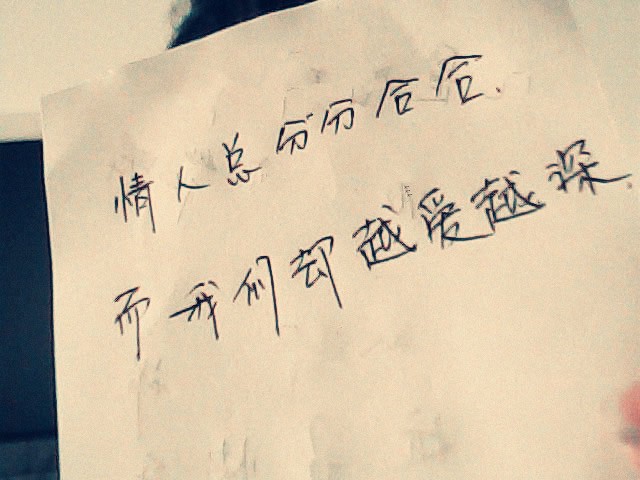 情人总分分合合.
而我们却越爱越深.